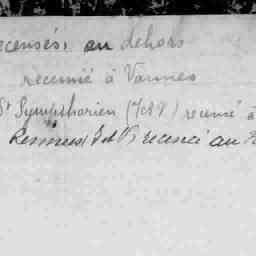 ecensés, au dehors
recensé à Vannes
St Symphorien (7bre 89) recensé à
Rennes recencé au